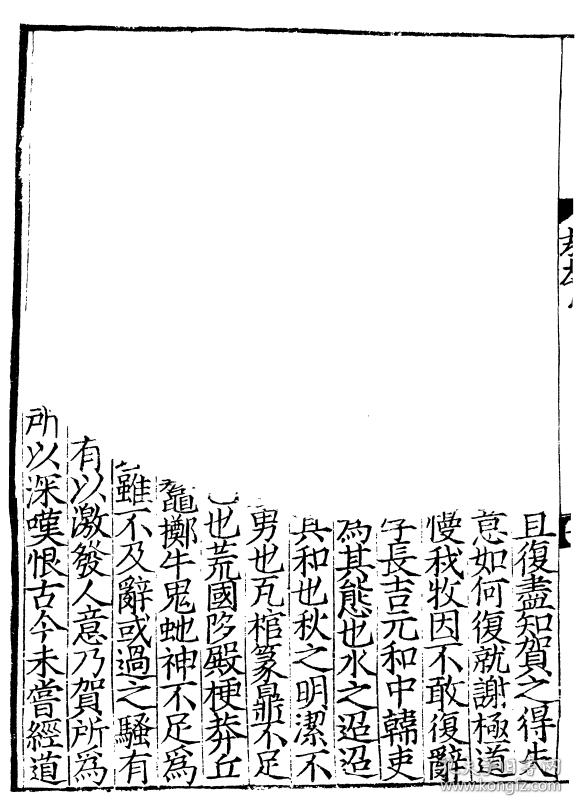 且復盡知賀之得失
意如何復就謝極道
慢我牧因不敢復辭
字長吉元和中韓吏
為其態也水之迢迢
其和也秋之明潔不
勇也瓦棺篆鼎不足
也荒國陊殿梗莽丘
鼇擲牛鬼虵神不足為
雖不及辭或過之騷有
有以激發人意乃賀所爲
所以深嘆恨古今未嘗經道